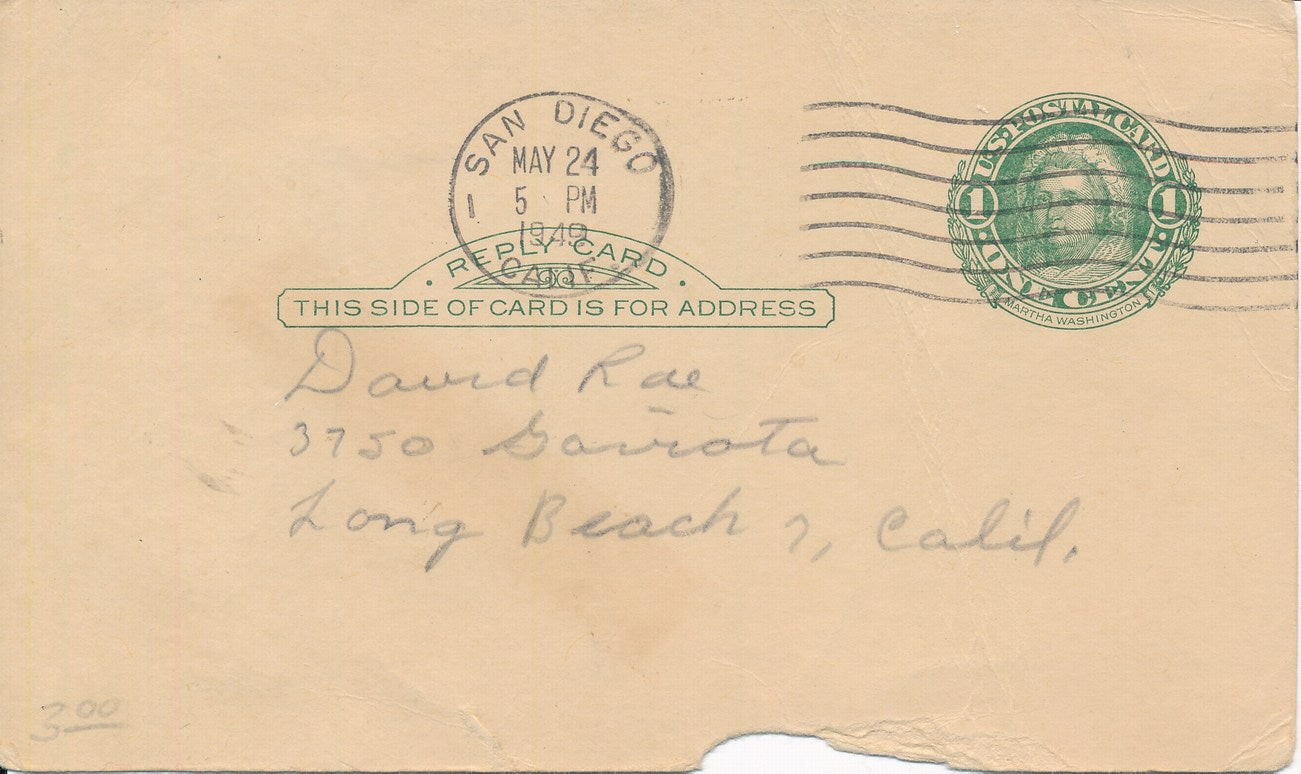 SAN DIEGO
MAY 24
5 PM
1949
1
CALIF.
U.S. POSTAL CARD
1 1
ONE CENT
MARTHA WASHINGTON
REPLY CARD
THIS SIDE OF CARD IS FOR ADDRESS
David Rae
3750 Gaviota
Long Beach 7, Calif.
3.00